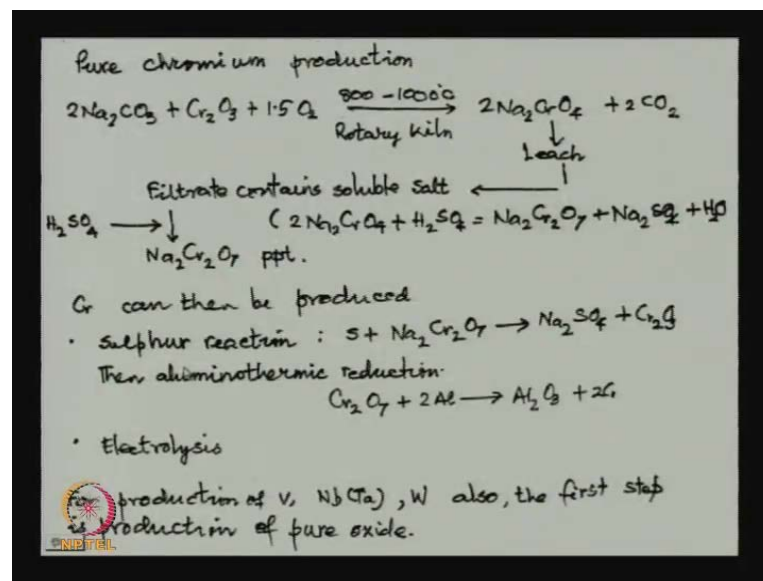 Pure chromium production
2Na₂CO₃ + Cr₂O₃ + 1.5 O₂ 800-1000°C Rotary kiln → 2Na₂CrO₄ + 2CO₂
↓
Leach
Filtrate contains soluble salt ←
H₂SO₄ → ↓ ( 2Na₂CrO₄ + H₂SO₄ = Na₂Cr₂O₇ + Na₂SO₄ + H₂O
Na₂Cr₂O₇ ppt.
Cr can then be produced
· Sulphur reaction : S + Na₂Cr₂O₇ → Na₂SO₄ + Cr₂O₃
Then aluminothermic reduction.
Cr₂O₇ + 2Al → Al₂O₃ + 2Cr
· Electrolysis
For production of V, Nb(Ta), W also, the first step
is production of pure oxide.
NPTEL